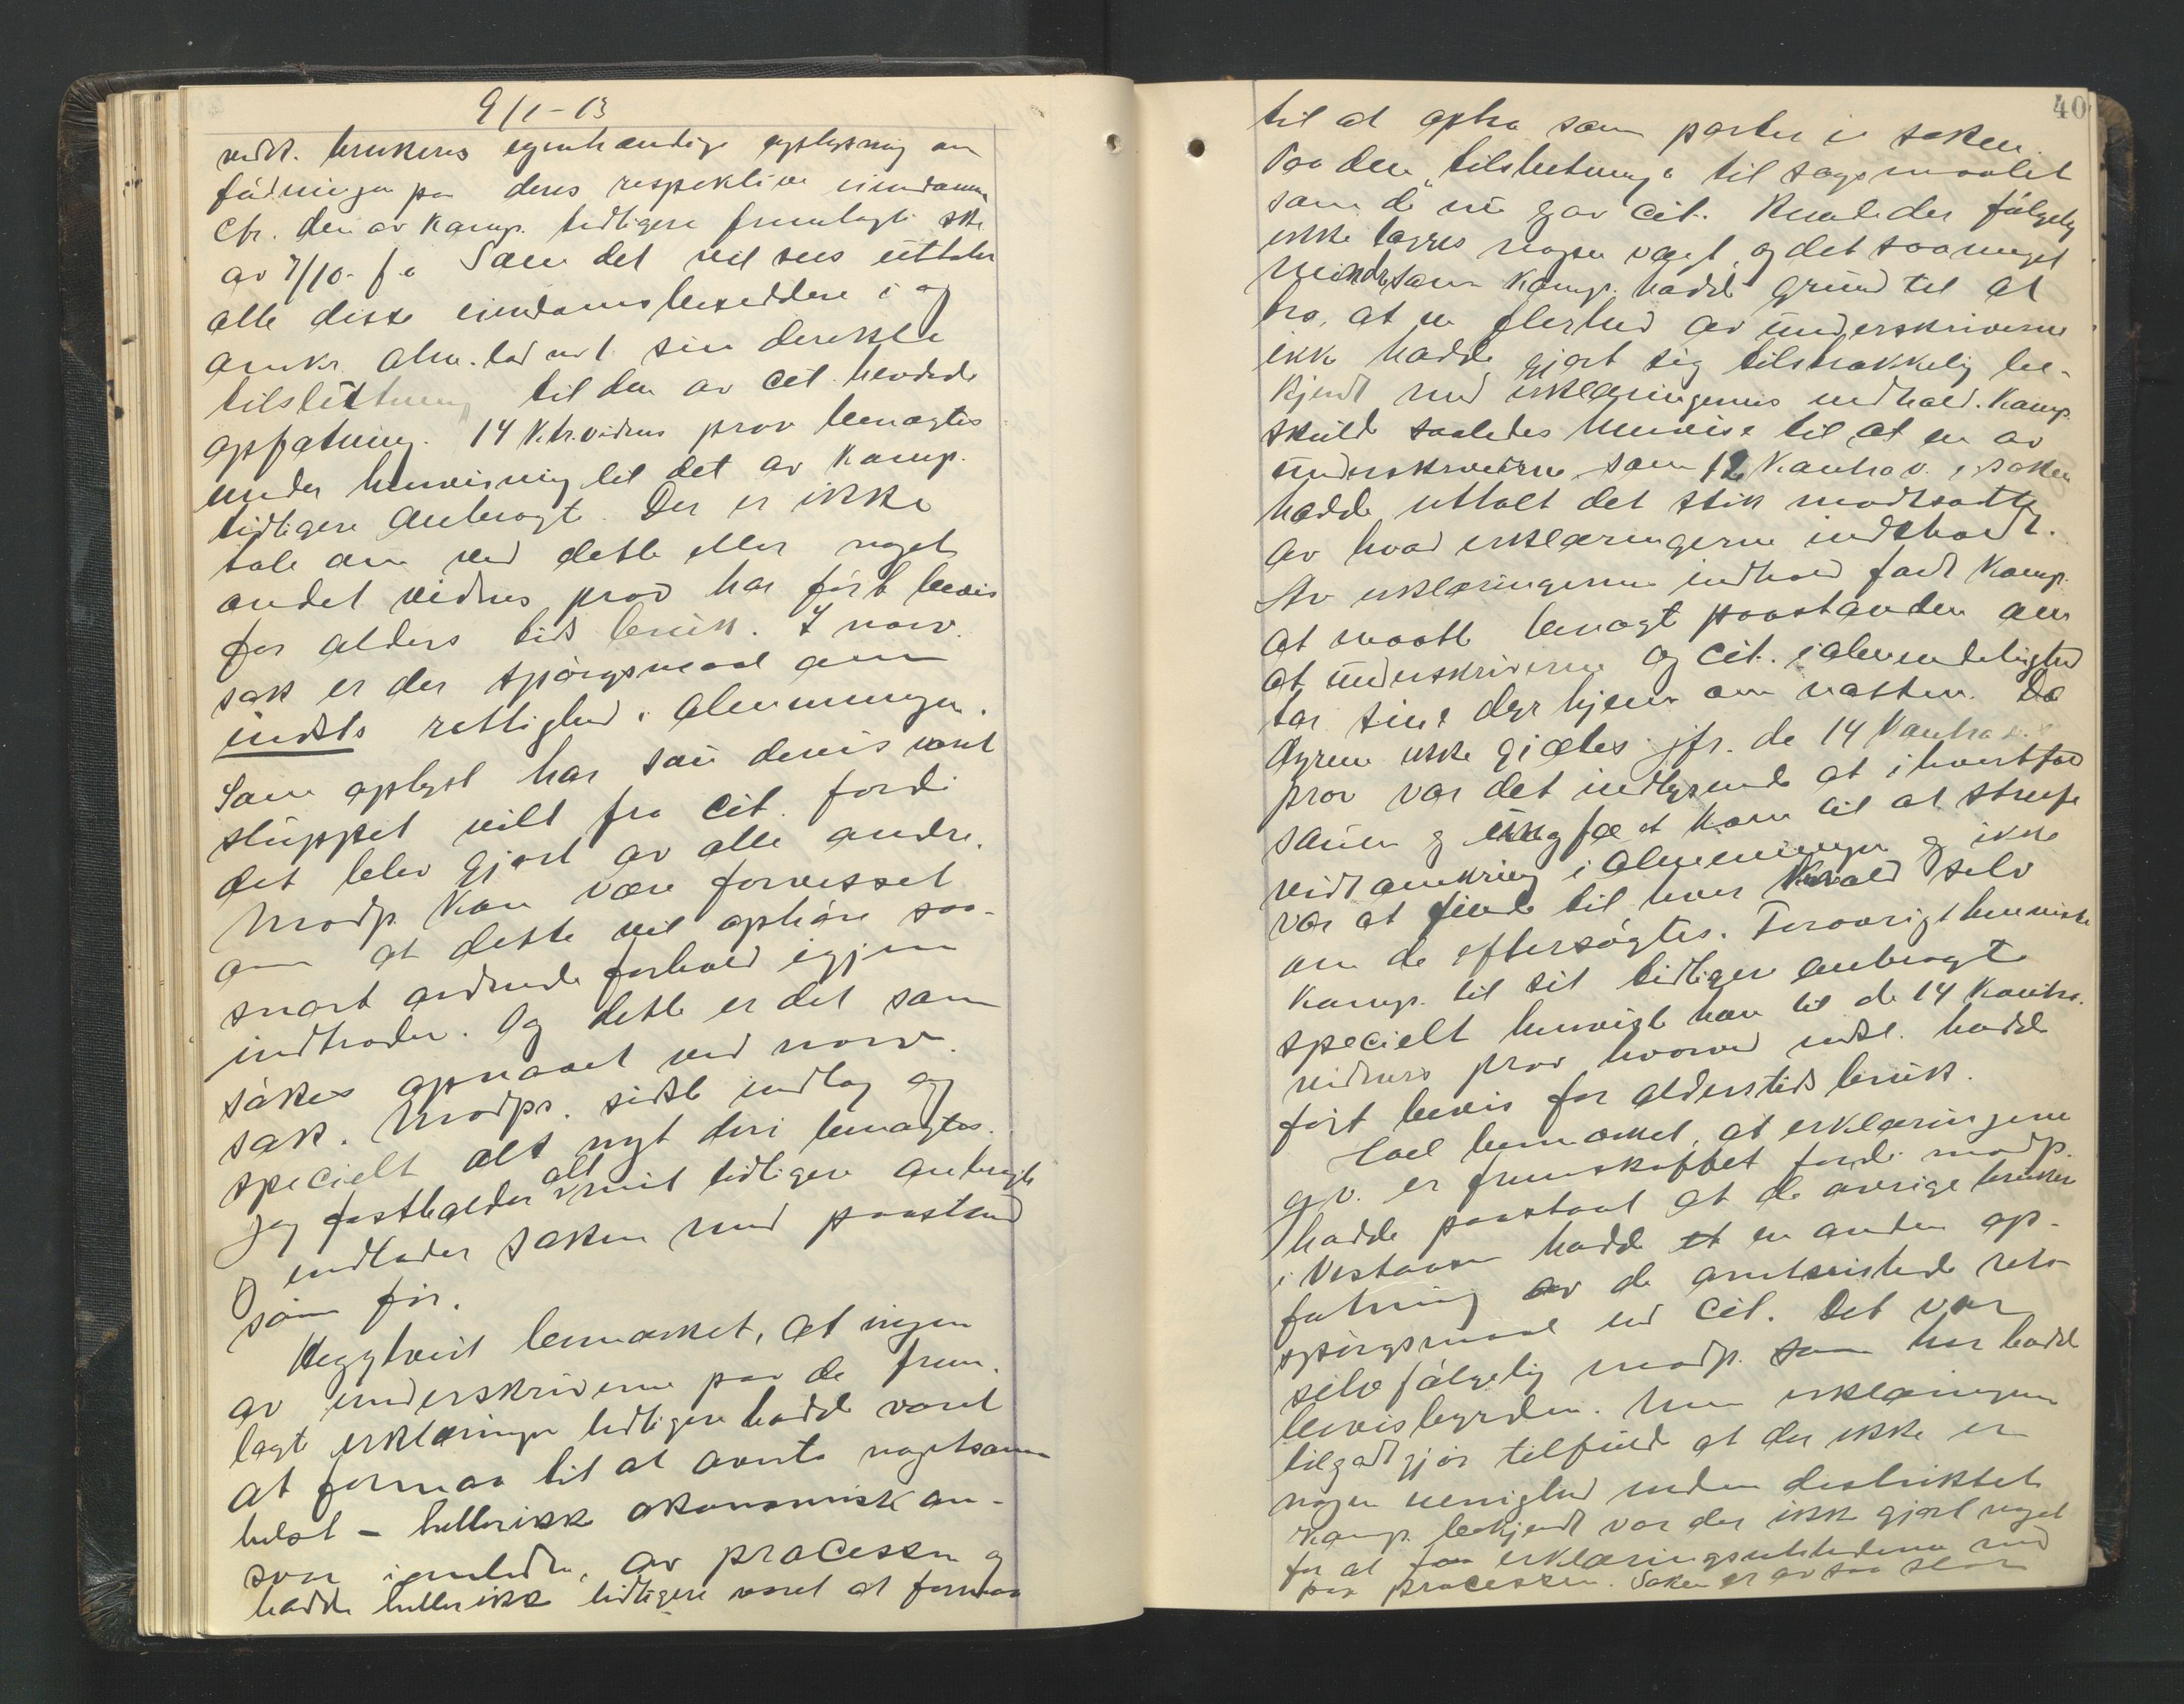 9/1-13
vedk. brukeres egenhændige oplysning om
fødningen paa deres respektive eiendomme
Cfr. den av Komp. tidligere fremlagte skr.
av 7/10. f. a. Som det vil sees uttaler
alle disse eiendomsbesiddere i og
omkr. alm. lod med sin direkte
tilslutning til den av Cit. hevdede
opfatning. 14 Ktr.vidnes prov benægtes
under henvisning til det av Komp.
tidligere anbragte. Der er ikke
tale om ved dette eller noget
andet vidnes prov har ført bevis
for alders tids bruk. I nærv.
sak er der spørgsmaal om
indsts rettighed i almenningen.
Som oplyst har sau denis været
sluppet vilt fra Cit. fordi
det blev gjort av alle andre.
Modp. kan være forvisset
om at dette vil ophøre saa-
snart ordnede forhold igjen
indtræder. Og dette er det som
søkes opnaaet ved nærv.
sak. Modps. sidste indlæg og
specielt alt nyt deri benægtes.
Jeg fastholder alt mit tidligere anbragte
og indlader saken med paastand
som før.
Heggtveit bemærket, at ingen
av underskriverne paa de frem-
lagte erklæringer tidligere hadde været
at formaa til at averta nogetsom
helst – heller ikke økonomisk an-
svar i anledn. av processen og
hadde heller ikke tidligere været at formaa
40
til at optræ som parter i saken.
Paa den "tilslutning" til søgsmaalet
som de nu gav Cit. kunde der følgelig
ikke lægges nogen vægt, og det saameget
mindre som Komp. hadde grund til at
tro, at en flerhed av underskriverne
ikke hadde gjort sig tilstrækkelig be-
kjendt med erklæringernes indhold. Komp.
skulde saaledes henvise til at en av
underskriverne som 12 Kontrav. i saken
hadde uttalt det stik modsatte
av hvad erklæringerne indeholdt.
Av erklæringernes indhold fandt Komp.
at maatte benægte paastanden om
at underskriverne og Cit. i almindelighed
tar sine dyr hjem om natten. Da
dyrene ikke gjætes jfr. de 14 Kontrav.
prov var det indlysende at i hvertfald
sauen og ungfæet kom til at streife
vidt omkring i almenningen og ikke
var at finde til hver kvæld selv
om de eftersøgtes. Forøvrigt henviste
Komp. til sit tidligere anbragte
specielt henviste han til de 14 Kontra.
vidners prov hvorved indst. hadde
ført bevis for alderstids bruk.
Hoel bemærket, at erklæringene
gv. er fremskaffet fordi modp.
hadde paastaat at de øvrige brukere
i Vestaasen hadde en anden op-
fatning av de omtvistede rets-
spørgsmaal end Cit. Det var
selvfølgelig modp. som her hadde
bevisbyrden. Men erklæringene
tilgodtgjør tilfulde at der ikke er
nogen uenighed inden distriktet
Komp. bekjendt var der ikke gjort noget
for at faa erklæringsutstederne med
paa processen. Saken er av saa stor